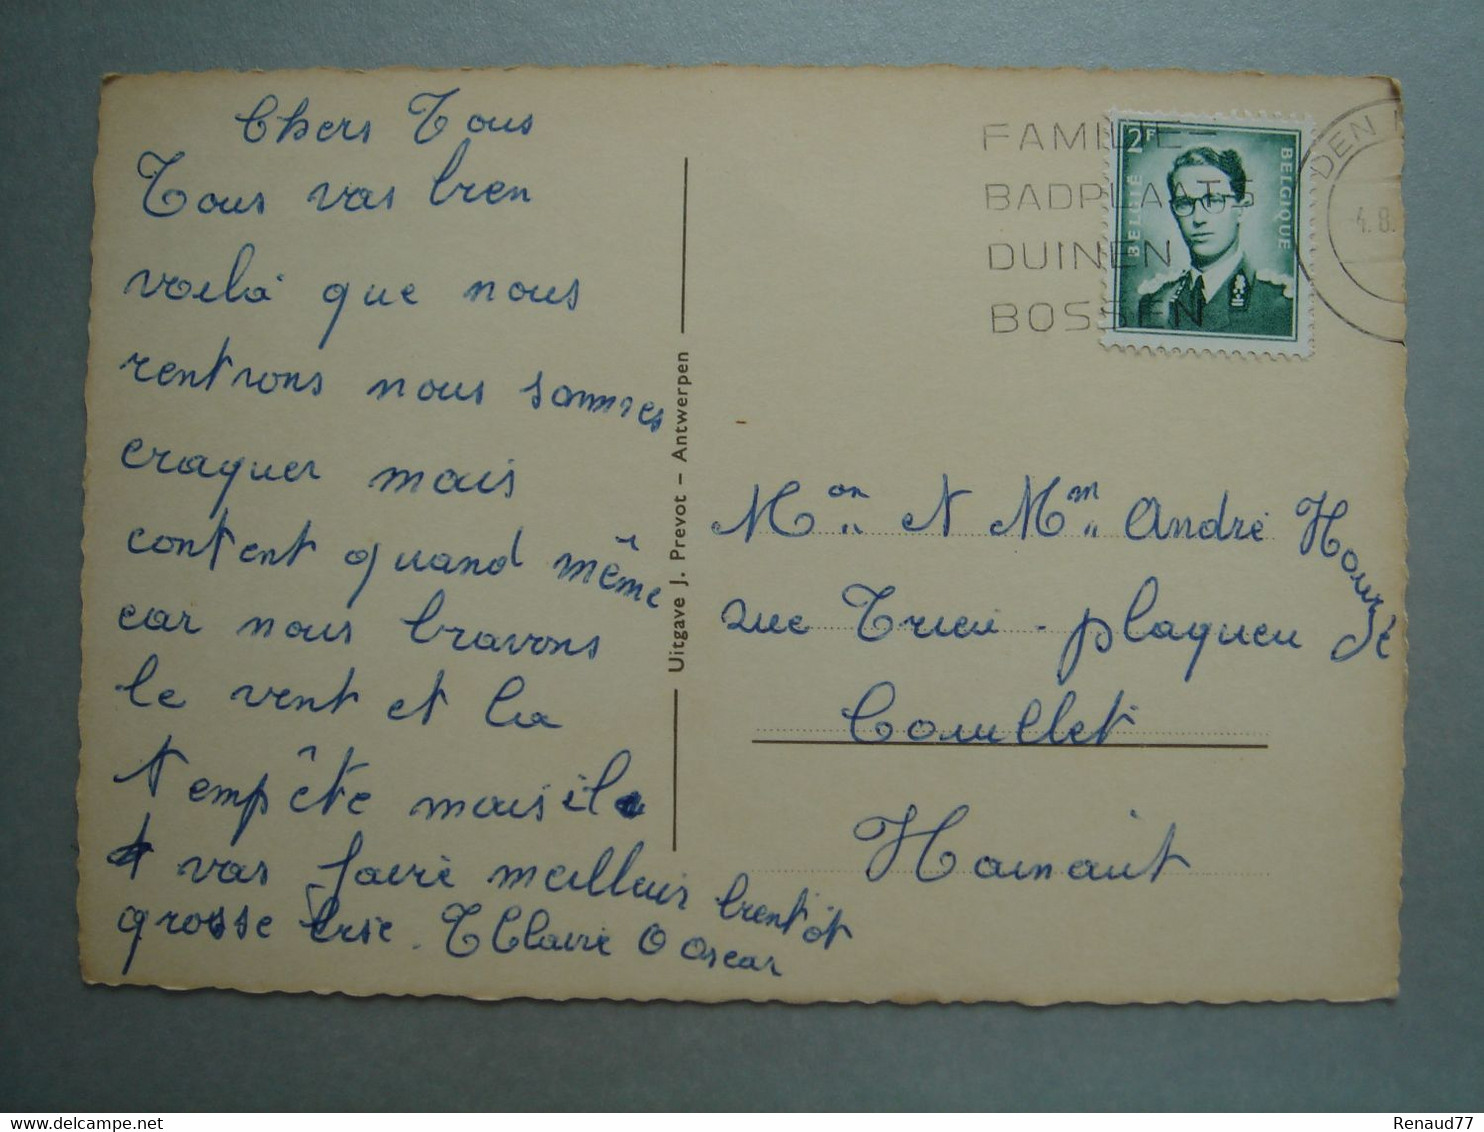 Chers Tous
Tous vas bien
voilà que nous
rentrons nous sommes
craquer mais
content quand même
car nous bravons
le vent et la
tempête mais il
vas faire meilleur bientôt
grosse bise. T Claire O Oscar
Uitgave J. Prevot – Antwerpen
FAMILIE–
BADPLAATS
DUINEN
BOSSEN
2F
BELGIË
BELGIQUE
DEN
4.8.
Mon et Mm André Houzé
rue Trieu-plaqueu
Couillet
Hainaut
Renaud77